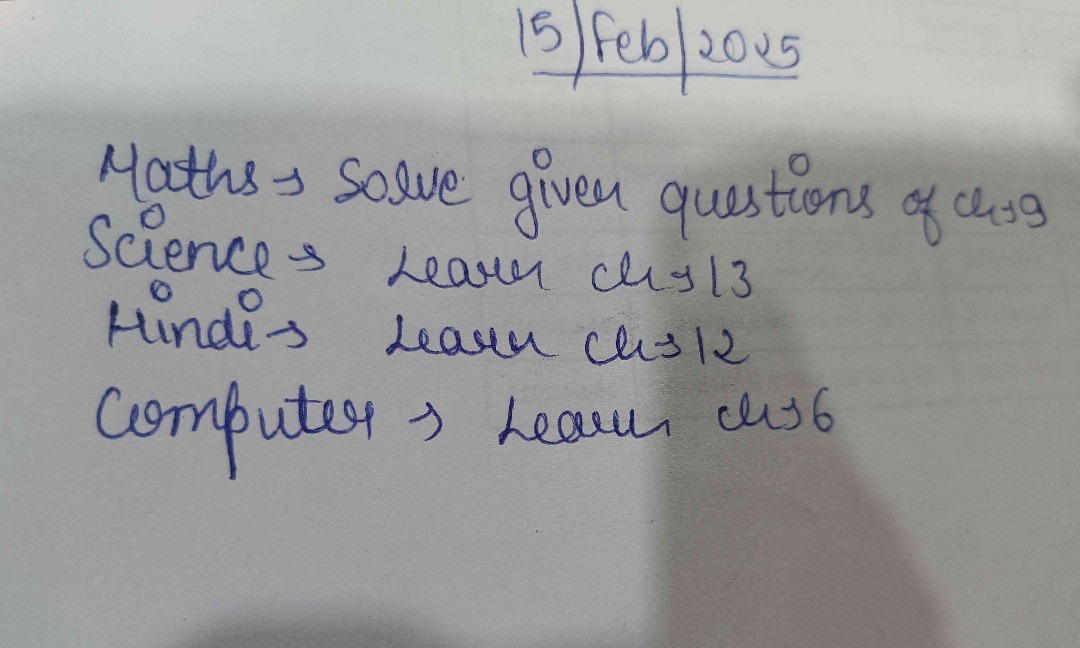 15/Feb/2025
Maths → Solve given questions of ch → 9
Science → Learn ch → 13
Hindi → Learn ch → 12
Computer → Learn ch → 6